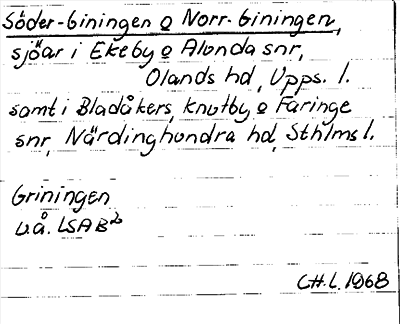 Söder-Giningen o Norr-Giningen,
sjöar i Ekeby o Alunda snr,
Olands hd, Upps. l.
samt i Bladåkers, Knutby o Faringe
snr, Närdinghundra hd, Sthlms l.
Griningen
u.å. LSA B2b
C.H.L. 1968